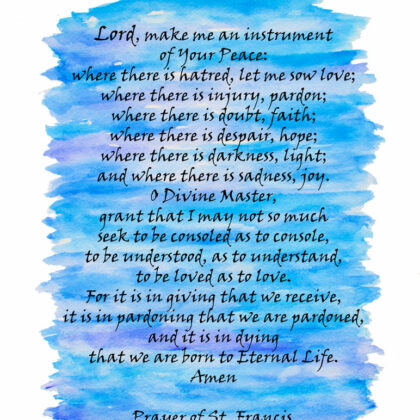 Lord, make me an instrument
of Your Peace:
where there is hatred, let me sow love;
where there is injury, pardon;
where there is doubt, faith;
where there is despair, hope;
where there is darkness, light;
and where there is sadness, joy.
O Divine Master,
grant that I may not so much
seek to be consoled as to console,
to be understood, as to understand,
to be loved as to love.
For it is in giving that we receive,
it is in pardoning that we are pardoned,
and it is in dying
that we are born to Eternal Life.
Amen
Prayer of St. Francis